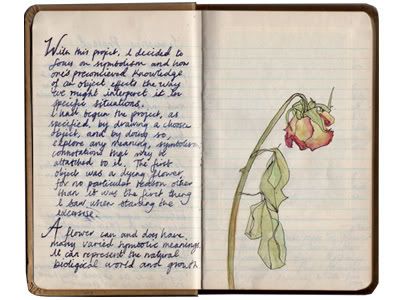 With this project, I decided to
focus on symbolism and how
one's preconceived knowledge
of an object effects the way
we might interpret it in
specific situations.
I had begun the project, as
specified, by drawing a chosen
object, and by doing so
explore any meaning, symbolism,
connotations that may be
attached to it. The first
object was a dying flower,
for no particular reason other
than it was the first thing
I saw when starting the
excersise.
A flower can and does have
many varied symbolic meanings.
It can represent the natural
biological world and growth